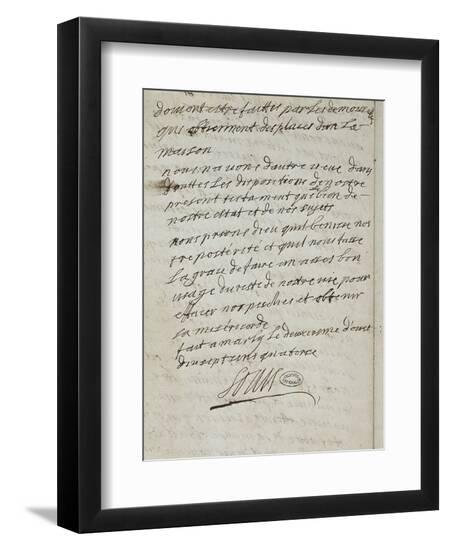 doivent estre faittes par les demois
qui obtiennent des places dans la
maison
nous n avons d autre veue dans
touttes les dispositions de nostre
présent testament que le bien de
nostre estat et de nos sujets
nous prions dieu quil benisse nos
tre postérité et quil nous fasse
la grace de faire un asses bon
usage du reste de nostre vie pour
effacer nos peches et obtenir
sa misericorde
fait a marly le deuxiesme d aoust
dix sept cens quatorze
Louis